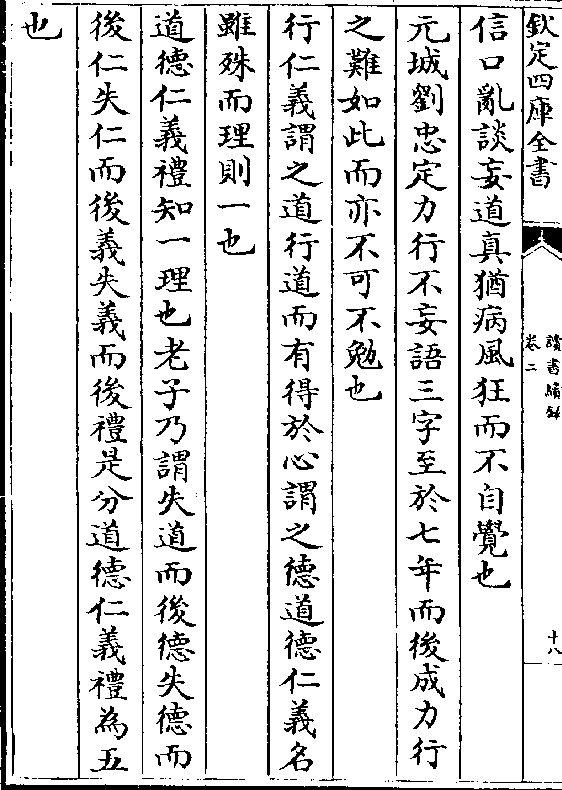 欽定四庫全書
讀書續錄
卷二
十八
信口亂談妄道真猶病風狂而不自覺也
元城劉忠定力行不妄語三字至於七年而後成力行
之難如此而亦不可不勉也
行仁義謂之道行道而有得於心謂之德道德仁義名
雖殊而理則一也
道德仁義禮知一理也老子乃謂失道而後德失德而
後仁失仁而後義失義而後禮是分道德仁義禮為五
也